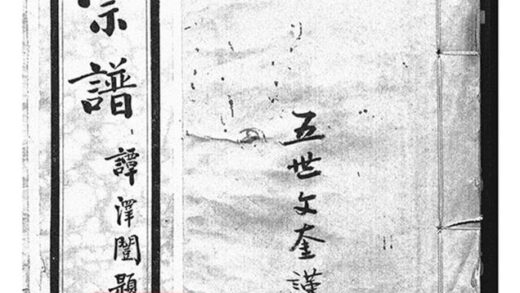 宗譜
譚澤闓題
五世文奎謹